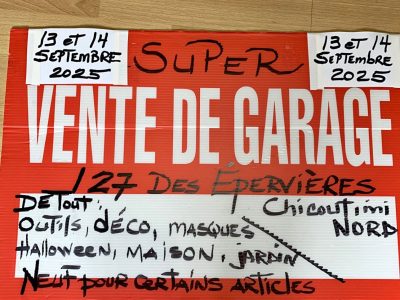 13 et 14
SEPTEMBRE
2025
SUPER
13 et 14
SEPTEMBRE
2025
VENTE DE GARAGE
127 DES ÉPERVIÈRES
DE TOUT:
CHICOUTIMI
NORD
OUTILS, DÉCO, MASQUES
HALLOWEEN, MAISON, JARDIN
NEUF POUR CERTAINS ARTICLES